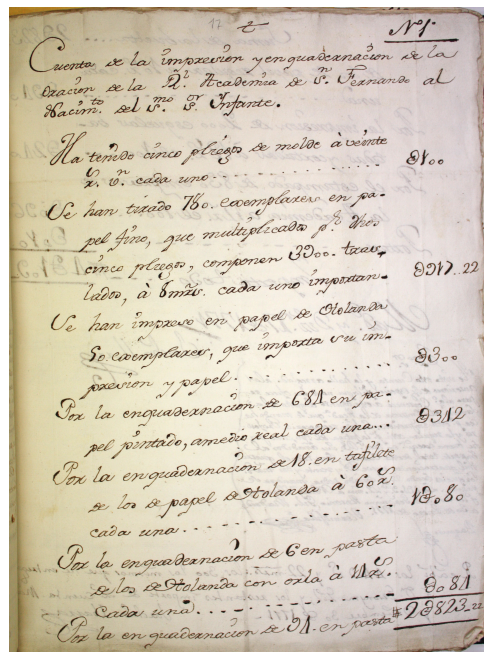 17 Nº 1º
Cuenta de la impresion y enquadernacion de la
Oracion de la Rl. Academia de Sn. Fernando al
Nacimto. del Smo. Sor. Infante.
Ha tenido cinco pliegos de molde à veinte
rs. vn. cada uno............ ∂100
Se han tirado 780. exemplares en pa-
pel fino, que multiplicados pr. dhos
cinco pliegos, componen 3900. tras-
lados, à 8 mrs. cada uno importan- ∂917..22
Se han impreso en papel de Olanda
50. exemplares, que importa su im-
presion y papel............ ∂300
Por la enquadernacion de 684 en pa-
pel pintado, a medio real cada una... ∂342
Por la enquadernacion de 18. en tafilete
de los de papel de Holanda à 60 rs.
cada una............ 1∂080
Por la enquadernacion de 6 en pasta
de los de Holanda con orla à 14 rs.
Cada una............ ∂084
2∂823..22
Por la enquadernacion de en pasta